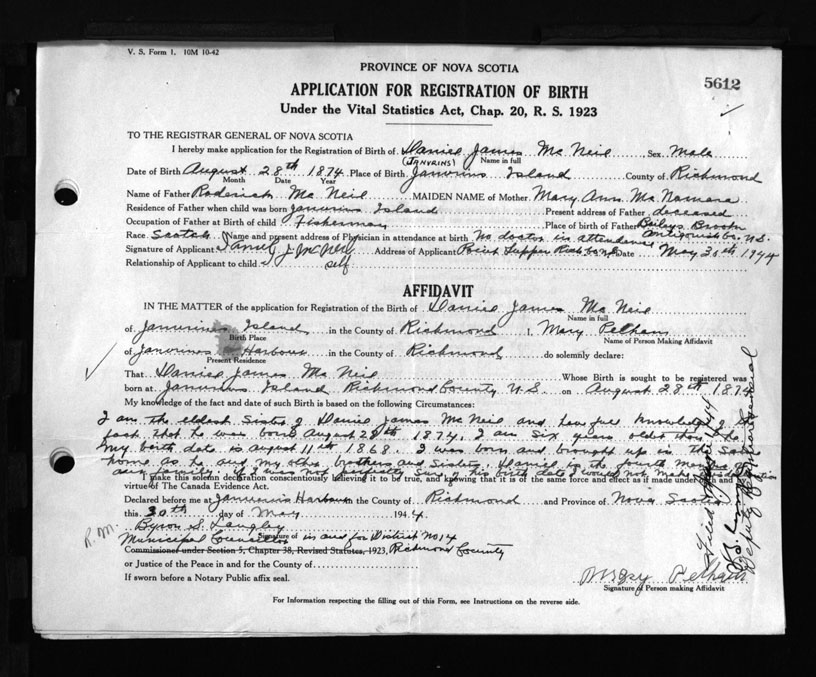 V. S. Form 1. 10M 10-42
PROVINCE OF NOVA SCOTIA
5612
APPLICATION FOR REGISTRATION OF BIRTH
Under the Vital Statistics Act, Chap. 20, R. S. 1923
TO THE REGISTRAR GENERAL OF NOVA SCOTIA
I hereby make application for the Registration of Birth of Daniel James Mc Neil Sex Male
(JANVRINS) Name in full
Date of Birth August 28th 1874 Place of Birth Janvrins Island County of Richmond
Month Date Year
Name of Father Roderick Mc Neil MAIDEN NAME of Mother Mary Ann Mc Namara
Residence of Father when child was born Janvrins Island Present address of Father deceased
Occupation of Father at Birth of child Fisherman Place of birth of Father Baileys Brook
Antigonish Co. N.S.
Race Scotch Name and present address of Physician in attendance at birth No doctor in attendance
Signature of Applicant Daniel J McNeil Address of Applicant Point Tupper Rich Co N.S. Date May 30th 1944
Relationship of Applicant to child self
AFFIDAVIT
IN THE MATTER of the application for Registration of the Birth of Daniel James Mc Neil
Name in full
of Janvrins Island in the County of Richmond I, Mary Pelham
Birth Place Name of Person Making Affidavit
of Janvrins Harbour in the County of Richmond do solemnly declare:
Present Residence
That Daniel James Mc Neil Whose Birth is sought to be registered was
born at Janvrins Island Richmond County N.S. on August 28th 1874
My knowledge of the fact and date of such Birth is based on the following Circumstances:
I am the eldest Sister of Daniel James Mc Neil and have full knowledge of the
fact that he was born August 28th 1874, I am six years older than he
my birth date is August 11th 1868. I was born and brought up in the same
home as he and my other brothers and Sisters, Daniel is the fourth Member of
our family. if I was not perfectly Sure of his birth date I would not make this declaration
I make this solemn declaration conscientiously believing it to be true, and knowing that it is of the same force and effect as if made under oath and by
virtue of The Canada Evidence Act.
Declared before me at Janvrins Harbour in the County of Richmond and Province of Nova Scotia
this 30th day of May 1944
R. M. Byron S. Langley
Signature of
Municipal Councillor in and for District No 14
Commissioner under Section 5, Chapter 38, Revised Statutes, 1923, Richmond County
or Justice of the Peace in and for the County of
If sworn before a Notary Public affix seal.
Mary Pelham
Signature of Person making Affidavit
For Information respecting the filling out of this Form, see Instructions on the reverse side.
Filed 1944
Deputy Registrar General